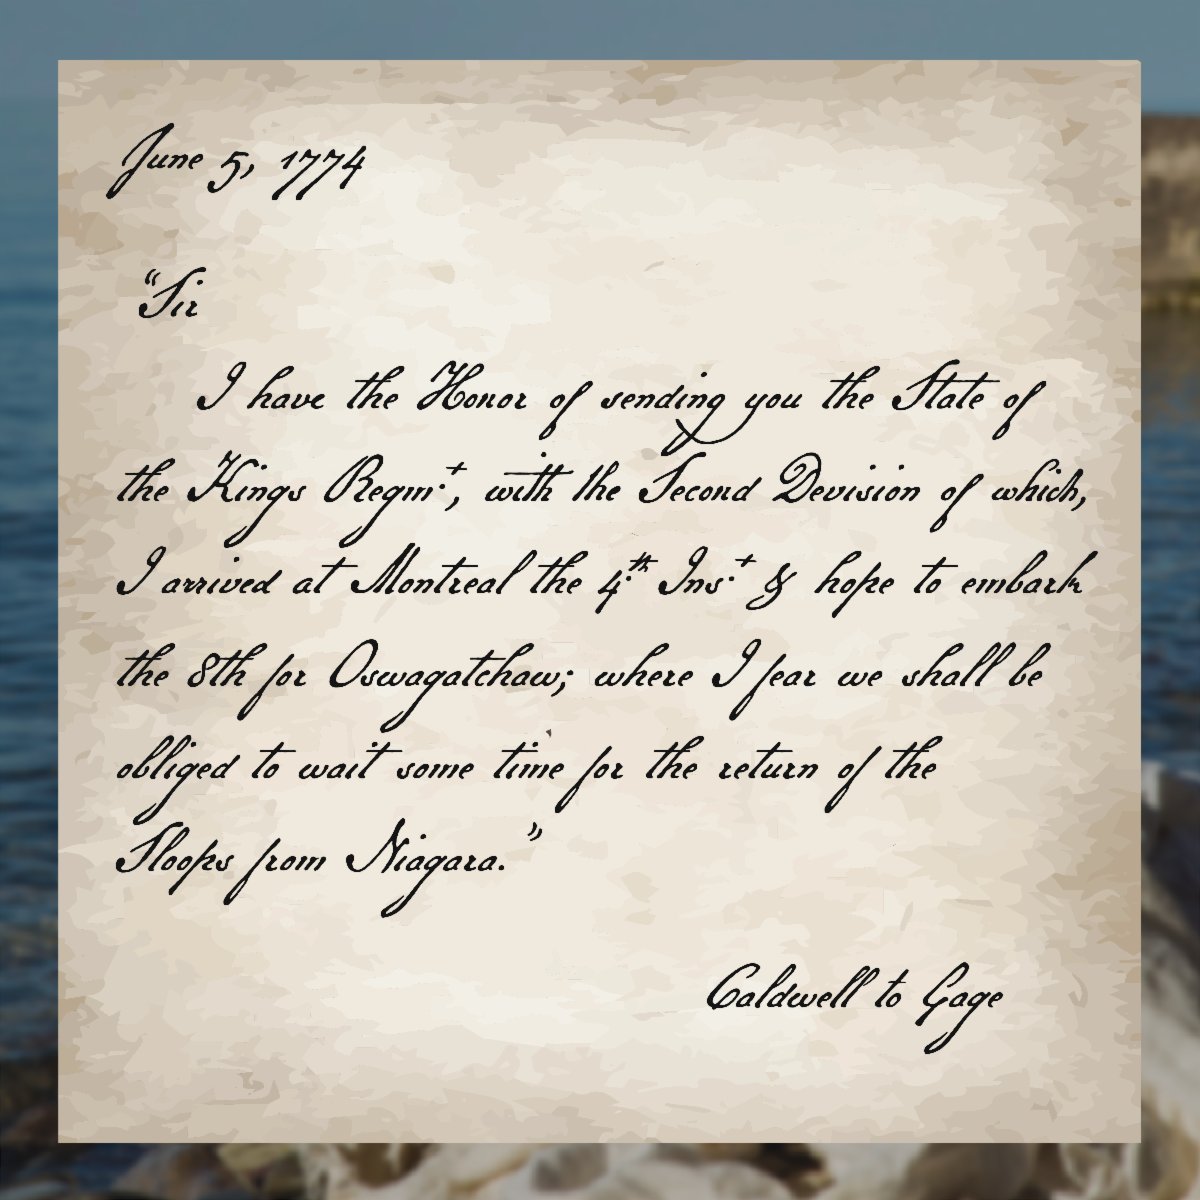 June 5, 1774
"Sir
I have the Honor of sending you the State of
the Kings Regim.t, with the Second Devision of which,
I arrived at Montreal the 4.th Ins.t & hope to embark
the 8th for Oswagatchaw; where I fear we shall be
obliged to wait some time for the return of the
Sloops from Niagara."
Caldwell to Gage